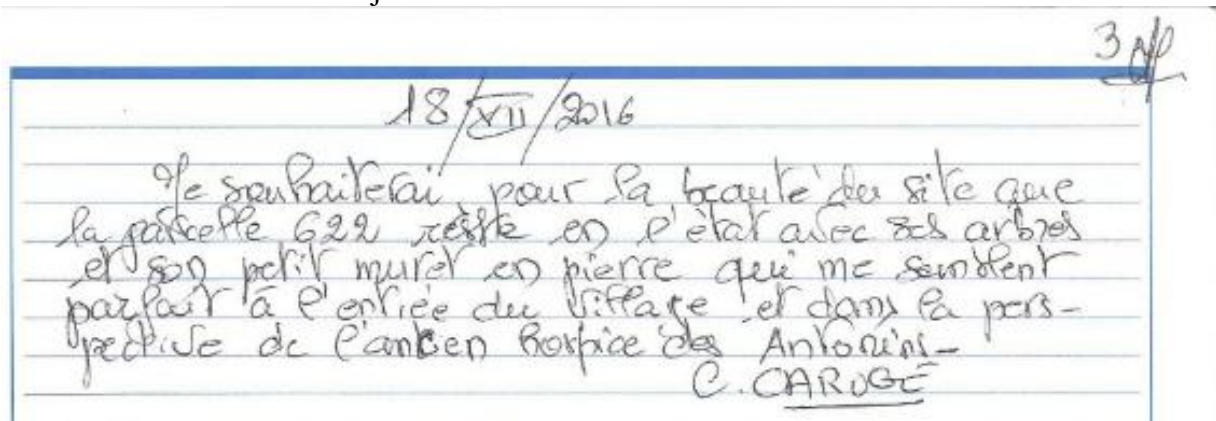 j
3
18/XII/2016
Je souhaiterai, pour la beauté du site que
la parcelle 622 reste en l'état avec ses arbres
et son petit muret en pierre qui me semblent
parfait à l'entrée du village et dans la pers-
pective de l'ancien hospice des Antonins-
C. CAROGE